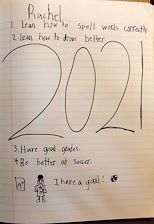 Rachel
1. Lean how to spell words correctly.
2. Lean how to draw better.
2021
3. Have good grates.
4. Be better at Soccer.
A+
I have a goal!